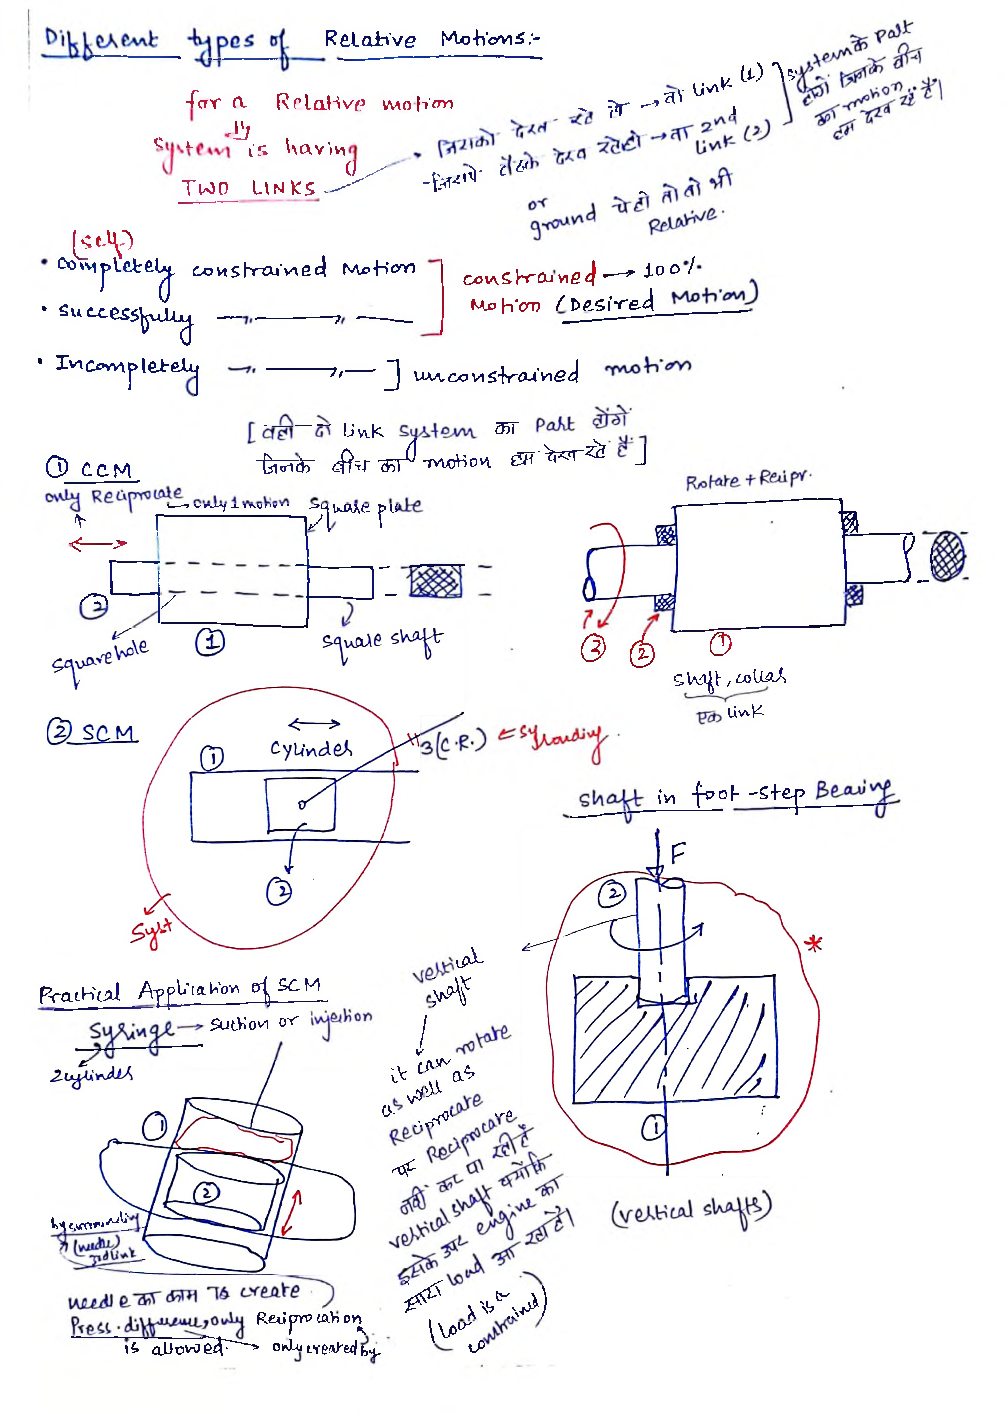 Different types of Relative Motions:-
for a Relative motion
system is having
TWO LINKS
• जिसको देख रहे हो → वो link (1)
- जिसपे बैठके देख रहे हो → वो 2nd link (2)
system के Part होंगे जिनके बीच का motion हम देख रहे हैं।
or
ground पे हो तो वो भी
Relative.
(self)
• completely constrained Motion
• successfully —〃— 〃 —
constrained → 100%
Motion (Desired Motion)
• Incompletely —〃— 〃 — ] unconstrained motion
[ वही दो link system का Part होंगे
जिनके बीच का motion हम देख रहे हैं ]
① CCM
only Reciprocate → only 1 motion
square plate
②
square hole
①
square shaft
Rotate + Recipr.
③
②
①
shaft, collar
एक link
② SCM
①
cylinder
3 (C.R.) ← surrounding.
②
syst
shaft in foot-step Bearing
F
②
*
①
(vertical shafts)
vertical
shaft
it can rotate
as well as
Reciprocate
पर Reciprocate
नहीं कर पा रही है
vertical shaft क्योंकि
इसके उपर engine का
सारा load आ रहा है।
(Load is a
constrained)
Practical Application of SCM
Syringe → suction or injection
2 cylinder
①
②
by surrounding
(needle)
3rd link
needle का काम is create
Press. difference, only Reciprocation
is allowed. → only created by